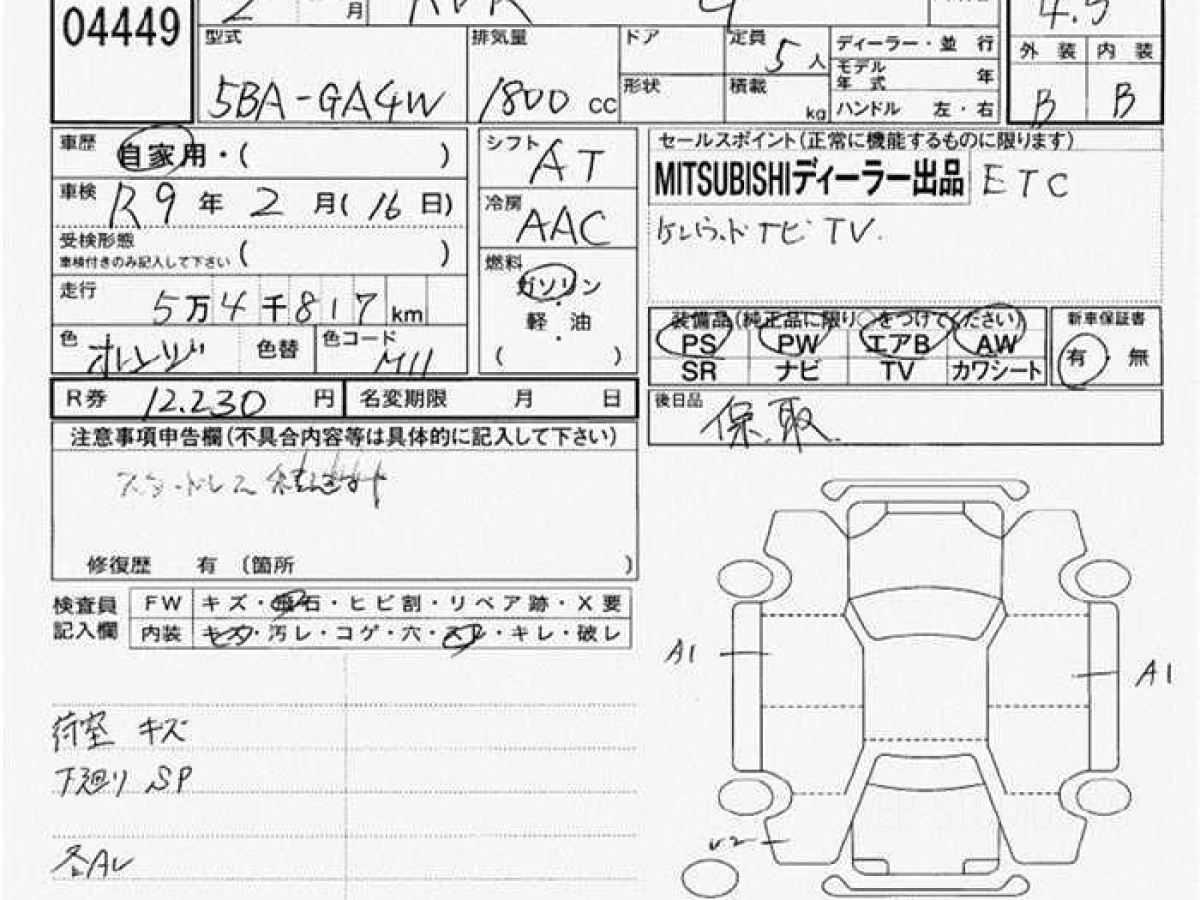 04449
2 月 RVR 4
型式 5BA-GA4W
排気量 1800 cc
ドア
定員 5 人
形状
積載 kg
ディーラー・並 行
モデル年式 年
ハンドル 左・右
4.5
外 装 内 装
B B
車歴 自家用・( )
車検 R9 年 2 月(16 日)
受検形態 ( )
車検付きのみ記入して下さい
走行 5万4千817 km
色 オレンジ 色替 色コード M11
シフト AT
冷房 AAC
燃料
ガソリン
・
軽 油
・
( )
セールスポイント(正常に機能するものに限ります)
MITSUBISHIディーラー出品 ETC
ケンウッドナビ TV.
装備品(純正品に限り○をつけてください)
PS PW エアB AW
SR ナビ TV カワシート
新車保証書
有 ・ 無
R券 12.230 円
名変期限 月 日
後日品 保.取.
注意事項申告欄(不具合内容等は具体的に記入して下さい)
スタッドレス
修復歴 有 〔箇所 )
検査員記入欄
FW キズ・飛石・ヒビ割・リペア跡・X要
内装 キズ・汚レ・コゲ・穴・スレ・キレ・破レ
荷室 キズ
下廻り SP
各AU
A1
A1